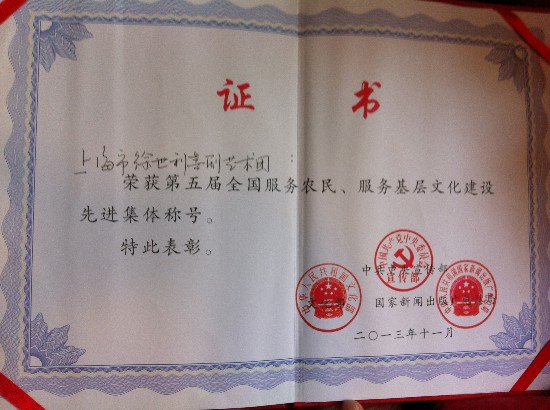 证 书
上海市徐世利喜剧艺术团：
荣获第五届全国服务农民、服务基层文化建设
先进集体称号。
特此表彰。
中国共产党中央委员会
宣传部
中华人民共和国文化部
二〇一三年十一月